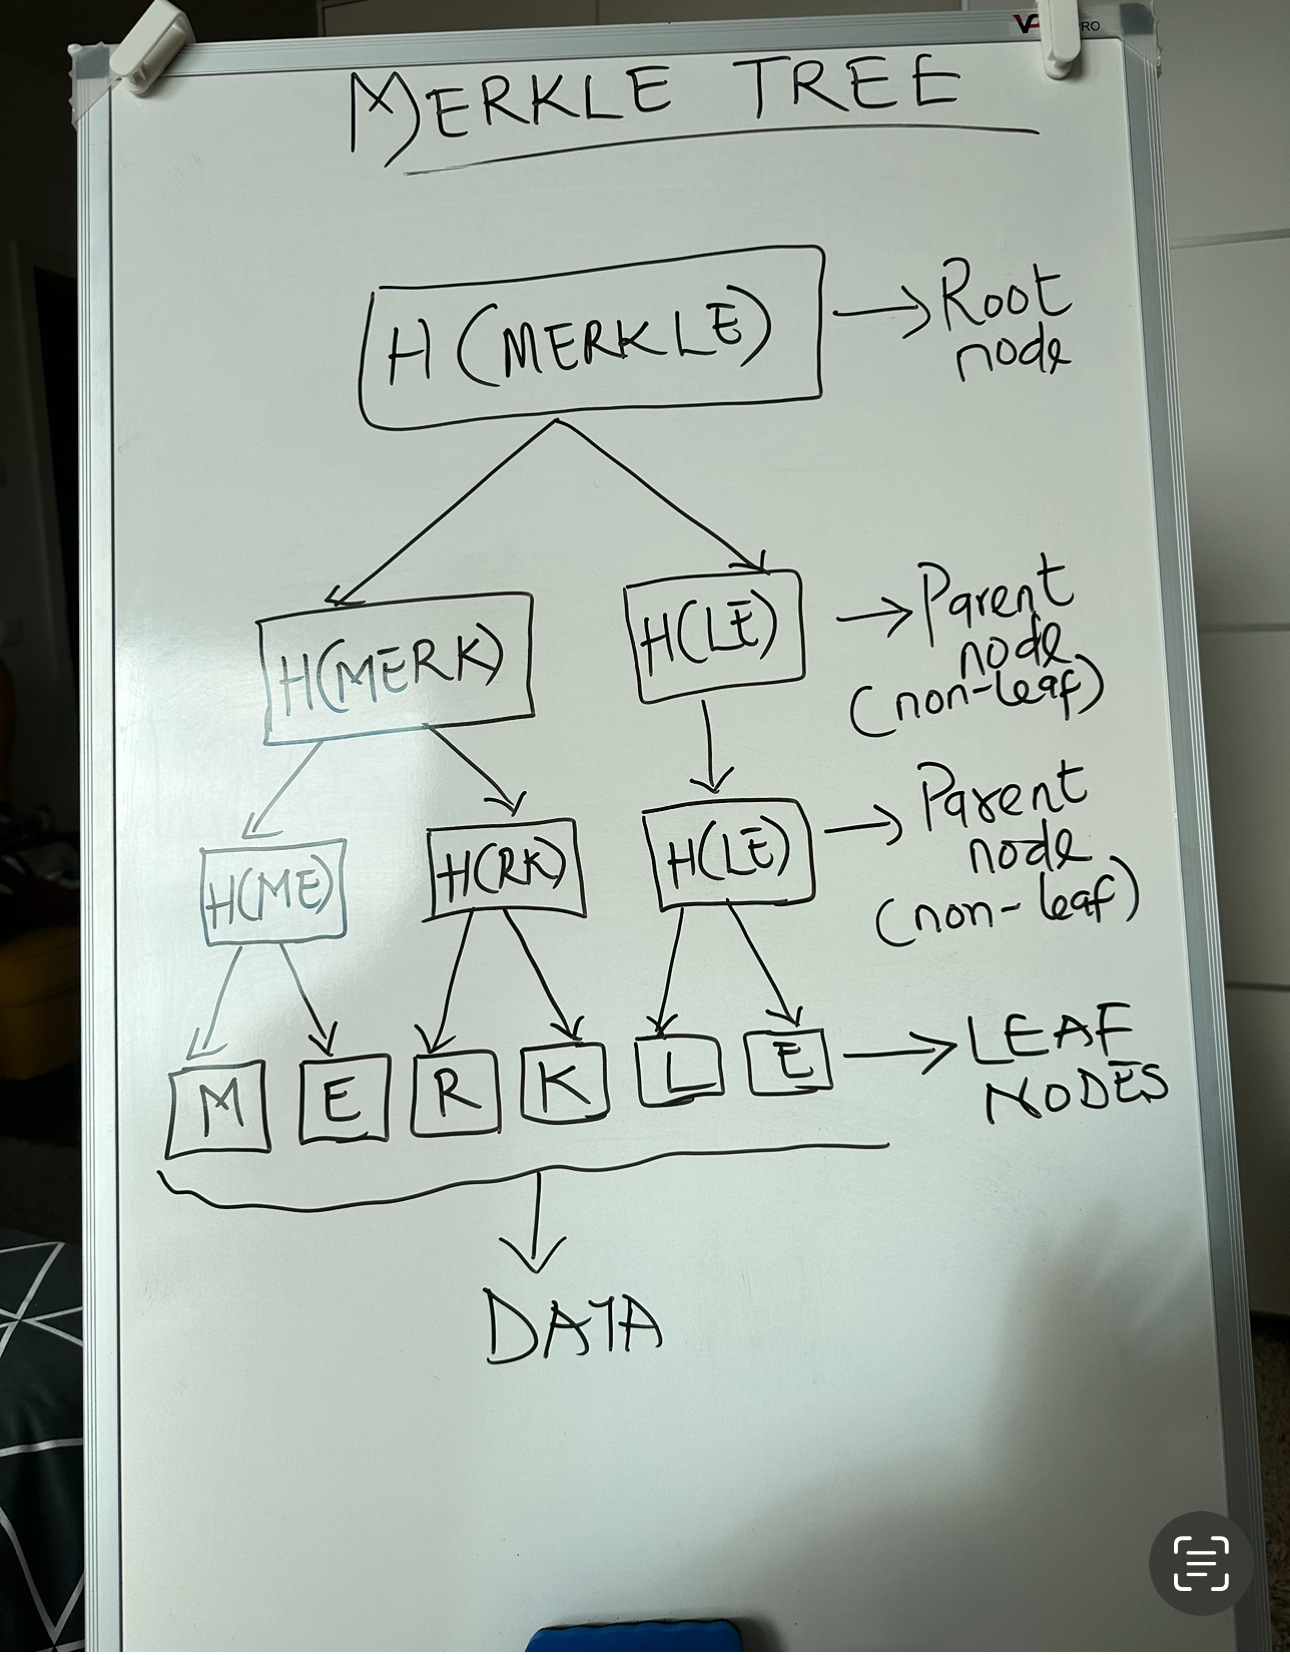 MERKLE TREE
H(MERKLE)
Root
node
H(MERK)
H(LE)
Parent
node
(non-leaf)
H(ME)
H(RK)
H(LE)
Parent
node
(non-leaf)
M E R K L E
LEAF
NODES
DATA